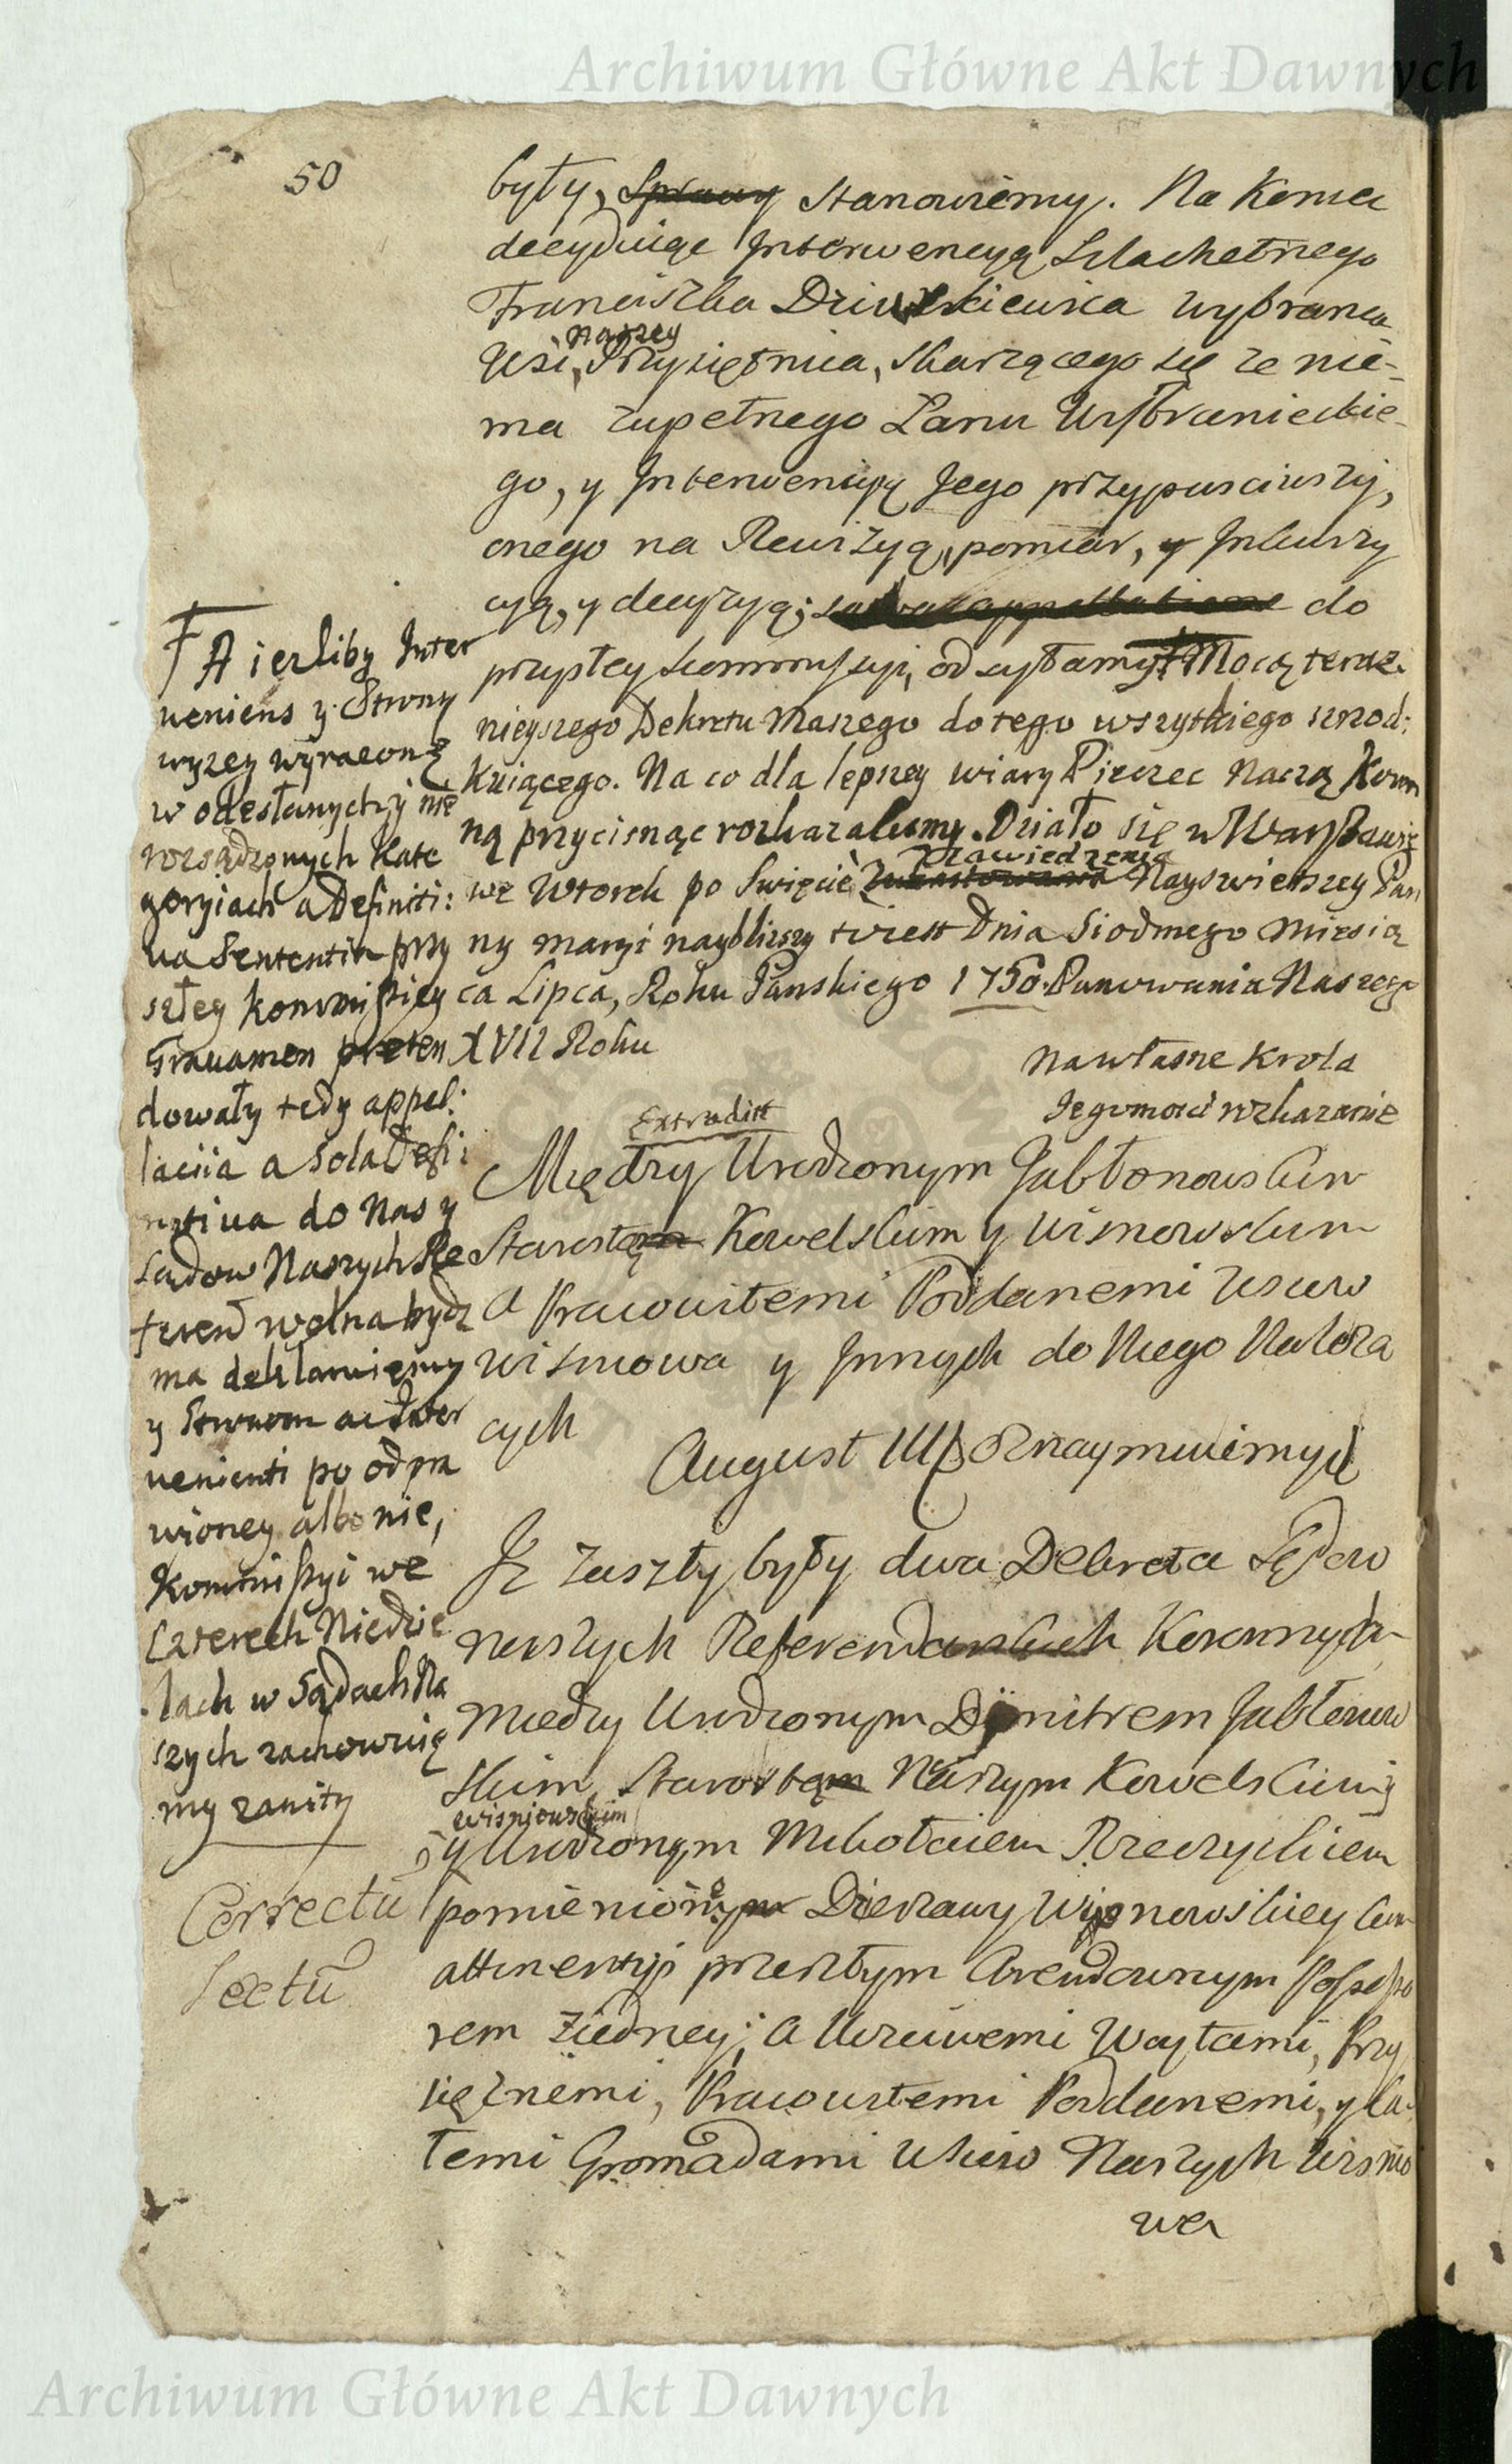 Archiwum Główne Akt Dawnych
50
były, Sprawy stanowiemy. Na Koniec
decyduiąc Interwencyą Szlachetnego
Franciszka Wybranca
naszey
Wsi, Przysietnica, skarzącego się ze nie-
ma zupełnego Łanu Wybranieckie-
go, y Interwencyą Jego przypusciwszy,
onego na Rewizyą, pomiar, y Inkwizy
cyą, y decyzyą; salva appellatione do
przyszłey Kommissyi, odsyłamy Mocą teraz-
nieyszego Dekretu Naszego do tego wszytkiego szrod:
kuiącego. Na co dla lepszey wiary Pieczec Naszą Koron
ną przycisnąc rozkazalismy. Działo się w Warszawie
Nawiedzenia
we Wtorek po Swięcie Nayswietszey Pan
ny Maryi nayblizszy to iest Dnia Siodmego Miesią
ca Lipca, Roku Panskiego 1750. Panowania Naszego
XVII Roku
Na własne Krola
Jegomosci rozkazanie
Ŧ A iezliby Inter
veniens y Strony
wyzey wyrazone
w odesłanych, y nie
rozsądzonych Kate
goryiach a Definiti:
va Sententia przy
szłey Kommissiey
Gravamen preten
dowały tedy appel:
laciia a sola Defi:
nitiva do Nas y
Sądow Naszych Re
feren wolna bydz
ma deklaruiemy
y Stronom ac Inter
venienti po odpra
wioney albo nie,
Kommissyi we
Czterech Niedzie
lach w Sądach Na
szych zachowuię
my zawity
Correctu
Lectu
Extradit
Między Urodzonym Jabłonowskim
Starostą Kowelskim y Wisnowskim
A Pracowitemi Poddanemi Wsiow
Wisniowa y Innych do Niego Naleza
cych
August III Oznaymuiemy
Jz zaszły były dwa Dekreta Sądow
naszych Referendarskich Koronnych
Miedzy Urodzonym Dymitrem Jabłonow
skim, Starostą Naszym Kowelskim
wisniowskim
y Urodzonym Mikołaiem Rzeczyckiem
pomienioney Dzierzawy Wisnowskiey cum
attinentijs przeszłym Arendownym Possesso
rem z iedney; A Uczciwemi Woytami, Przy
sięznemi, Pracowitemi Poddanemi, y Ca-
łemi Gromadami Wsiow Naszych Wisnio
wa
Archiwum Główne Akt Dawnych